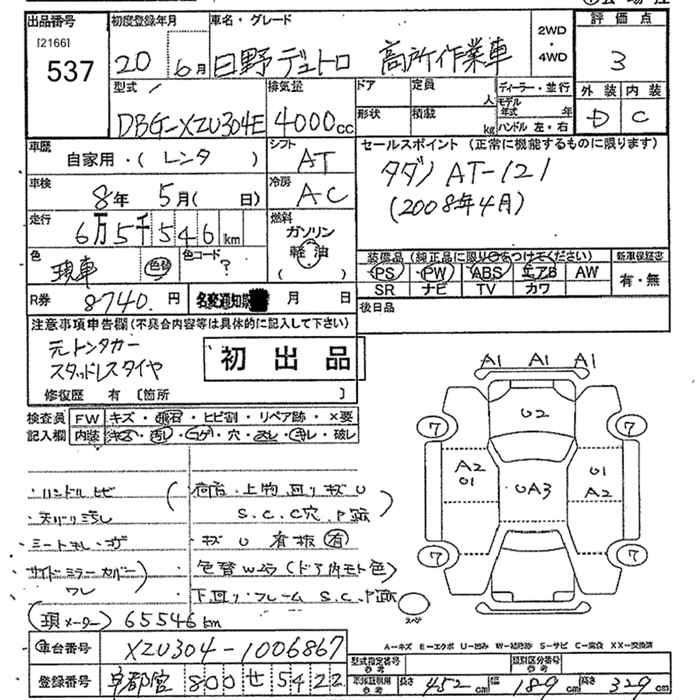 出品番号 初度登録年月 車名・グレード 評価点
[2166] 537
20年6月 日野デュトロ 高所作業車
2WD・4WD
3
型式 排気量 ドア 定員 人 ディーラー・並行 外装 内装
DBG-XZU304E 4000cc
形状 積載 kg モデル年式 年 ハンドル 左・右
D C
車歴 自家用・(レンタ) シフト AT
セールスポイント(正常に機能するものに限ります)
タダノ AT-121
(2008年4月)
車検 8年5月(日) 冷房 AC
走行 6万5千546km 燃料 ガソリン 軽油 ( )
色 現車 色替 色コード ?
装備品(純正品に限り○をつけてください) 新車保証書
PS PW ABS エアB AW 有・無
SR ナビ TV カワ
R券 8740.円 名変通知期 月 日
後日品
注意事項申告欄(不具合内容等は具体的に記入して下さい)
元トンタカー
スタッドレスタイヤ
初出品
修復歴 有 〔箇所 〕
検査員記入欄
FW キズ・飛石・ヒビ割・リペア跡・×要
内装 キズ・汚レ・コゲ・穴・スレ・キレ・破レ
A1 A1 A1
U2
7 7
A2 01
UA3
U1 A2
7 7
スペア
・ハンドルヒビ
・天バリ汚レ
(荷台・上物回リキズU
S.C.C穴.P跡)
・キズU 看板有
サイドミラーカバーワレ)
色替W23(ドア内モト色)
下回リ・フレームS.C.P跡
(現メーター) 65546km
A=キズ E=エクボ U=凹み W=補修跡 S=サビ C=腐食 XX=交換済
車台番号 XZU304-1006867
登録番号 宇都宮 800 せ 5422
型式指定番号 参考 類別区分番号 参考
長さ 452cm 幅 189cm 高さ 329cm